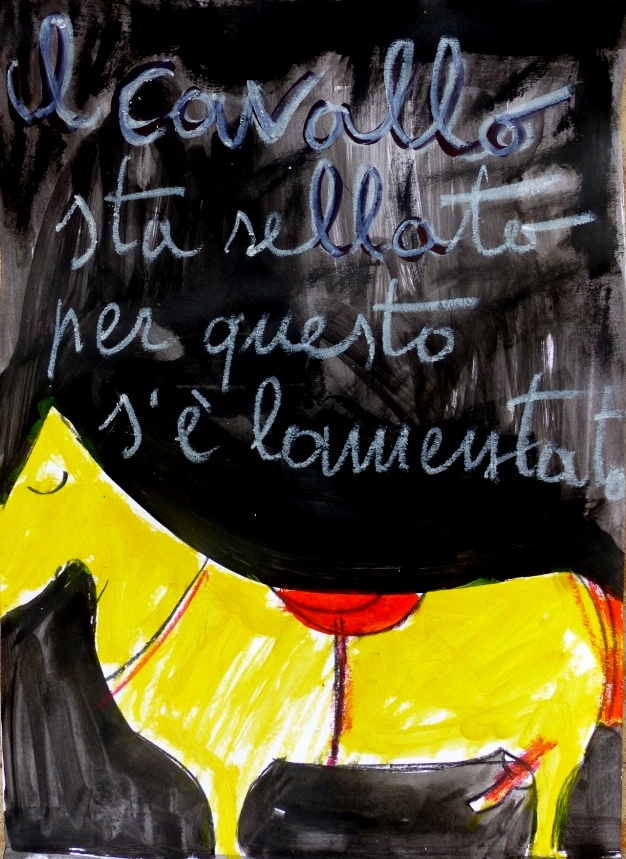 il cavallo
sta sellato
per questo
s'è lamentato